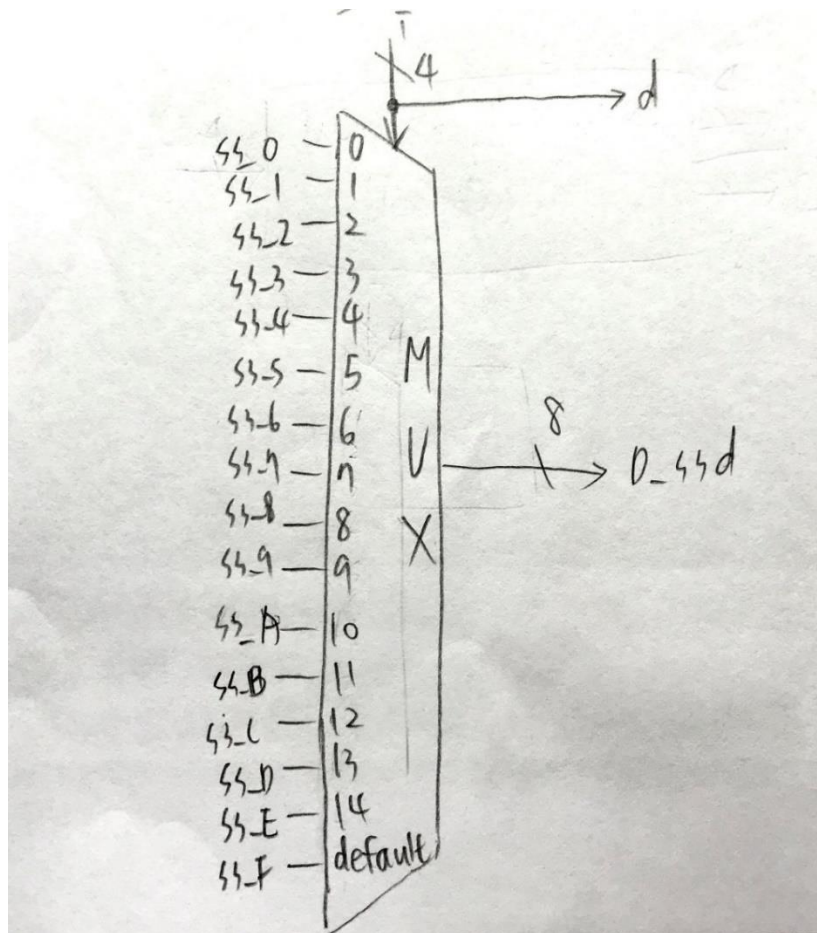 i
4
d
ss_0 0
ss_1 1
ss_2 2
ss_3 3
ss_4 4
ss_5 5
ss_6 6
ss_7 7
ss_8 8
ss_9 9
ss_A 10
ss_B 11
ss_C 12
ss_D 13
ss_E 14
ss_F default
MUX
8
D_ssd